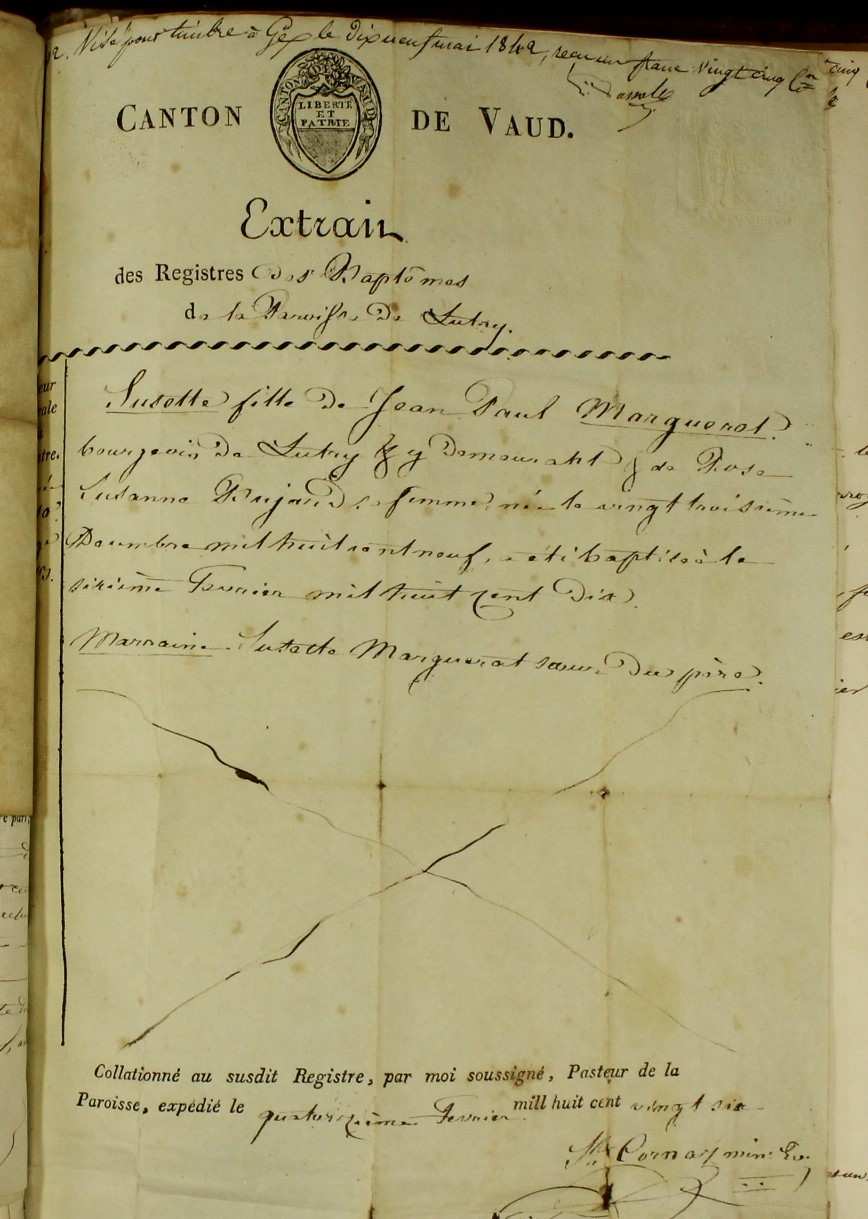 Visé pour timbre à Gex le dix neuf mai 1842, reçu un franc vingt cinq
CANTON DE VAUD.
CANTON DE VAUD
LIBERTÉ
ET
PATRIE
Extrait
des Registres des Baptêmes
de la Paroisse de Lutry.
Susette fille de Jean Paul Marguerat.
bourgeois de Lutry & y demeurant & de Rose
Susanne Bujard sa femme, née le vingt troisième
Décembre mil huit cent neuf, a été baptisée le
sixième Fevrier mil huit cent dix.
Marraine Susette Marguerat sœur du père.
Collationné au susdit Registre, par moi soussigné, Pasteur de la
Paroisse, expédié le quatorzième Fevrier mill huit cent vingt six